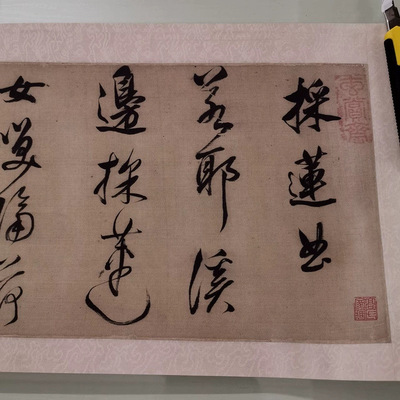 採蓮曲
若耶溪
邊採蓮
女笑隔荷